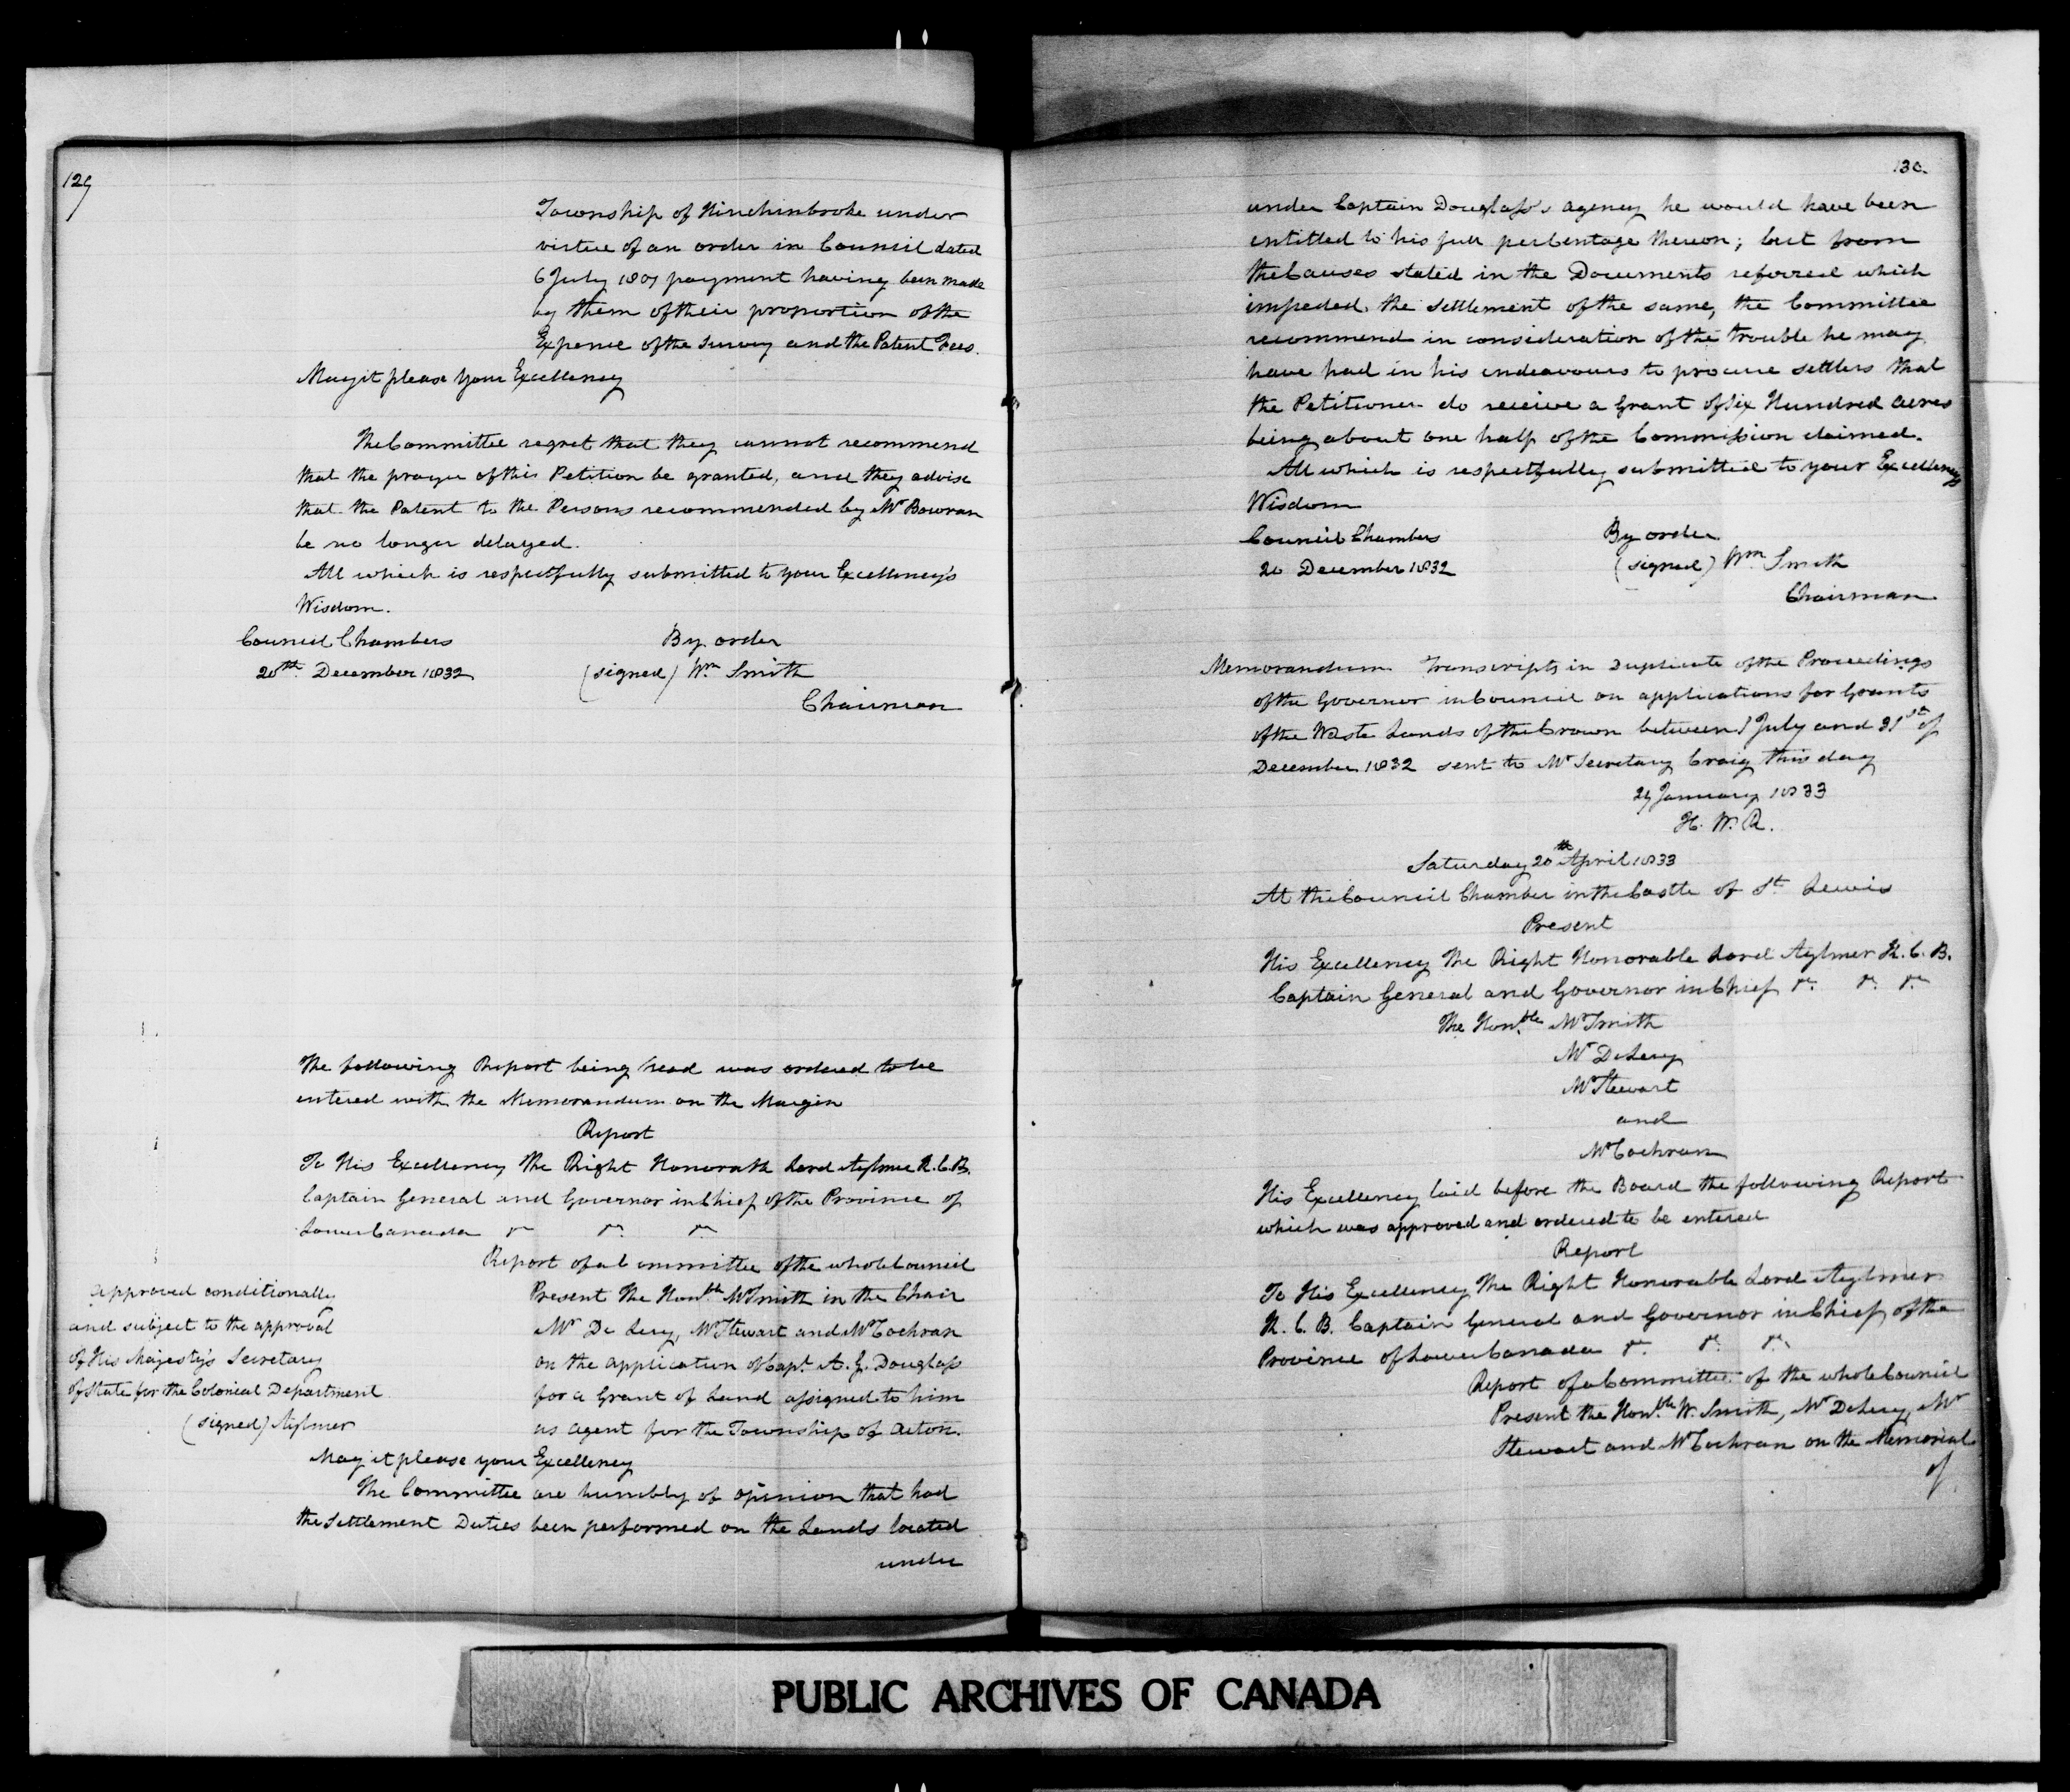 129
Township of Hinchinbroke under
virtue of an order in Council dated
6 July 1807 payment having been made
by them of their proportion of the
Expense of the survey and the Patent Fees.
May it please Your Excellency
The Committee regret that they cannot recommend
that the prayer of this Petition be granted, and they advise
that the Patent to the Persons recommended by Mr Bowran
be no longer delayed.
All which is respectfully submitted to your Excellency's
Wisdom.
Council Chambers By order
20th December 1832 (signed) Wm Smith
Chairman
The following Report being read was ordered to be
entered with the Memorandum on the Margin
Report
To His Excellency The Right Honorable Lord Aylmer K.C.B.
Captain General and Governor in Chief of the Province of
Lower Canada &c &c &c
Report of a Committee of the whole Council
Present The Honble Mr Smith in the Chair
Mr De Lery, Mr Stewart and Mr Cochran
on the application of Capt. A. G. Douglass
for a Grant of Land assigned to him
as agent for the Township of Acton.
approved conditionally
and subject to the approval
of His Majesty's Secretary
of State for the Colonial Department
(signed) Aylmer
May it please your Excellency
The Committee are humbly of opinion that had
the Settlement Duties been performed on the Lands located
under
130.
under Captain Douglass's agency he would have been
entitled to his full perCentage thereon; but from
the Causes stated in the Documents referred which
impeded the settlement of the same, the Committee
recommend in consideration of the trouble he may
have had in his endeavours to procure settlers that
the Petitioner do receive a Grant of Six Hundred acres
being about one half of the Commission claimed.
All which is respectfully submitted to your Excellency's
Wisdom
Council Chambers By order
20 December 1832 (signed) Wm Smith
Chairman
Memorandum Transcripts in Duplicate of the Proceedings
of the Governor in Council on applications for Grants
of the Waste Lands of the Crown between 1 July and 31st of
December 1832 sent to Mr Secretary Craig this day
29 January 1833
H. W. R.
Saturday 20th April 1833
At the Council Chamber in the Castle of St Lewis
Present
His Excellency The Right Honorable Lord Aylmer K.C.B.
Captain General and Governor in Chief &c. &c. &c.
The Honble Mr Smith
Mr De Lery
Mr Stewart
and
Mr Cochran
His Excellency laid before the Board the following Report
which was approved and ordered to be entered
Report
To His Excellency The Right Honorable Lord Aylmer
K. C. B. Captain General and Governor in Chief of the
Province of Lower Canada &c. &c. &c.
Report of a Committee of the whole Council
Present the Honble W. Smith, Mr De Lery, Mr
Stewart and Mr Cochran on the Memorial
of
PUBLIC ARCHIVES OF CANADA